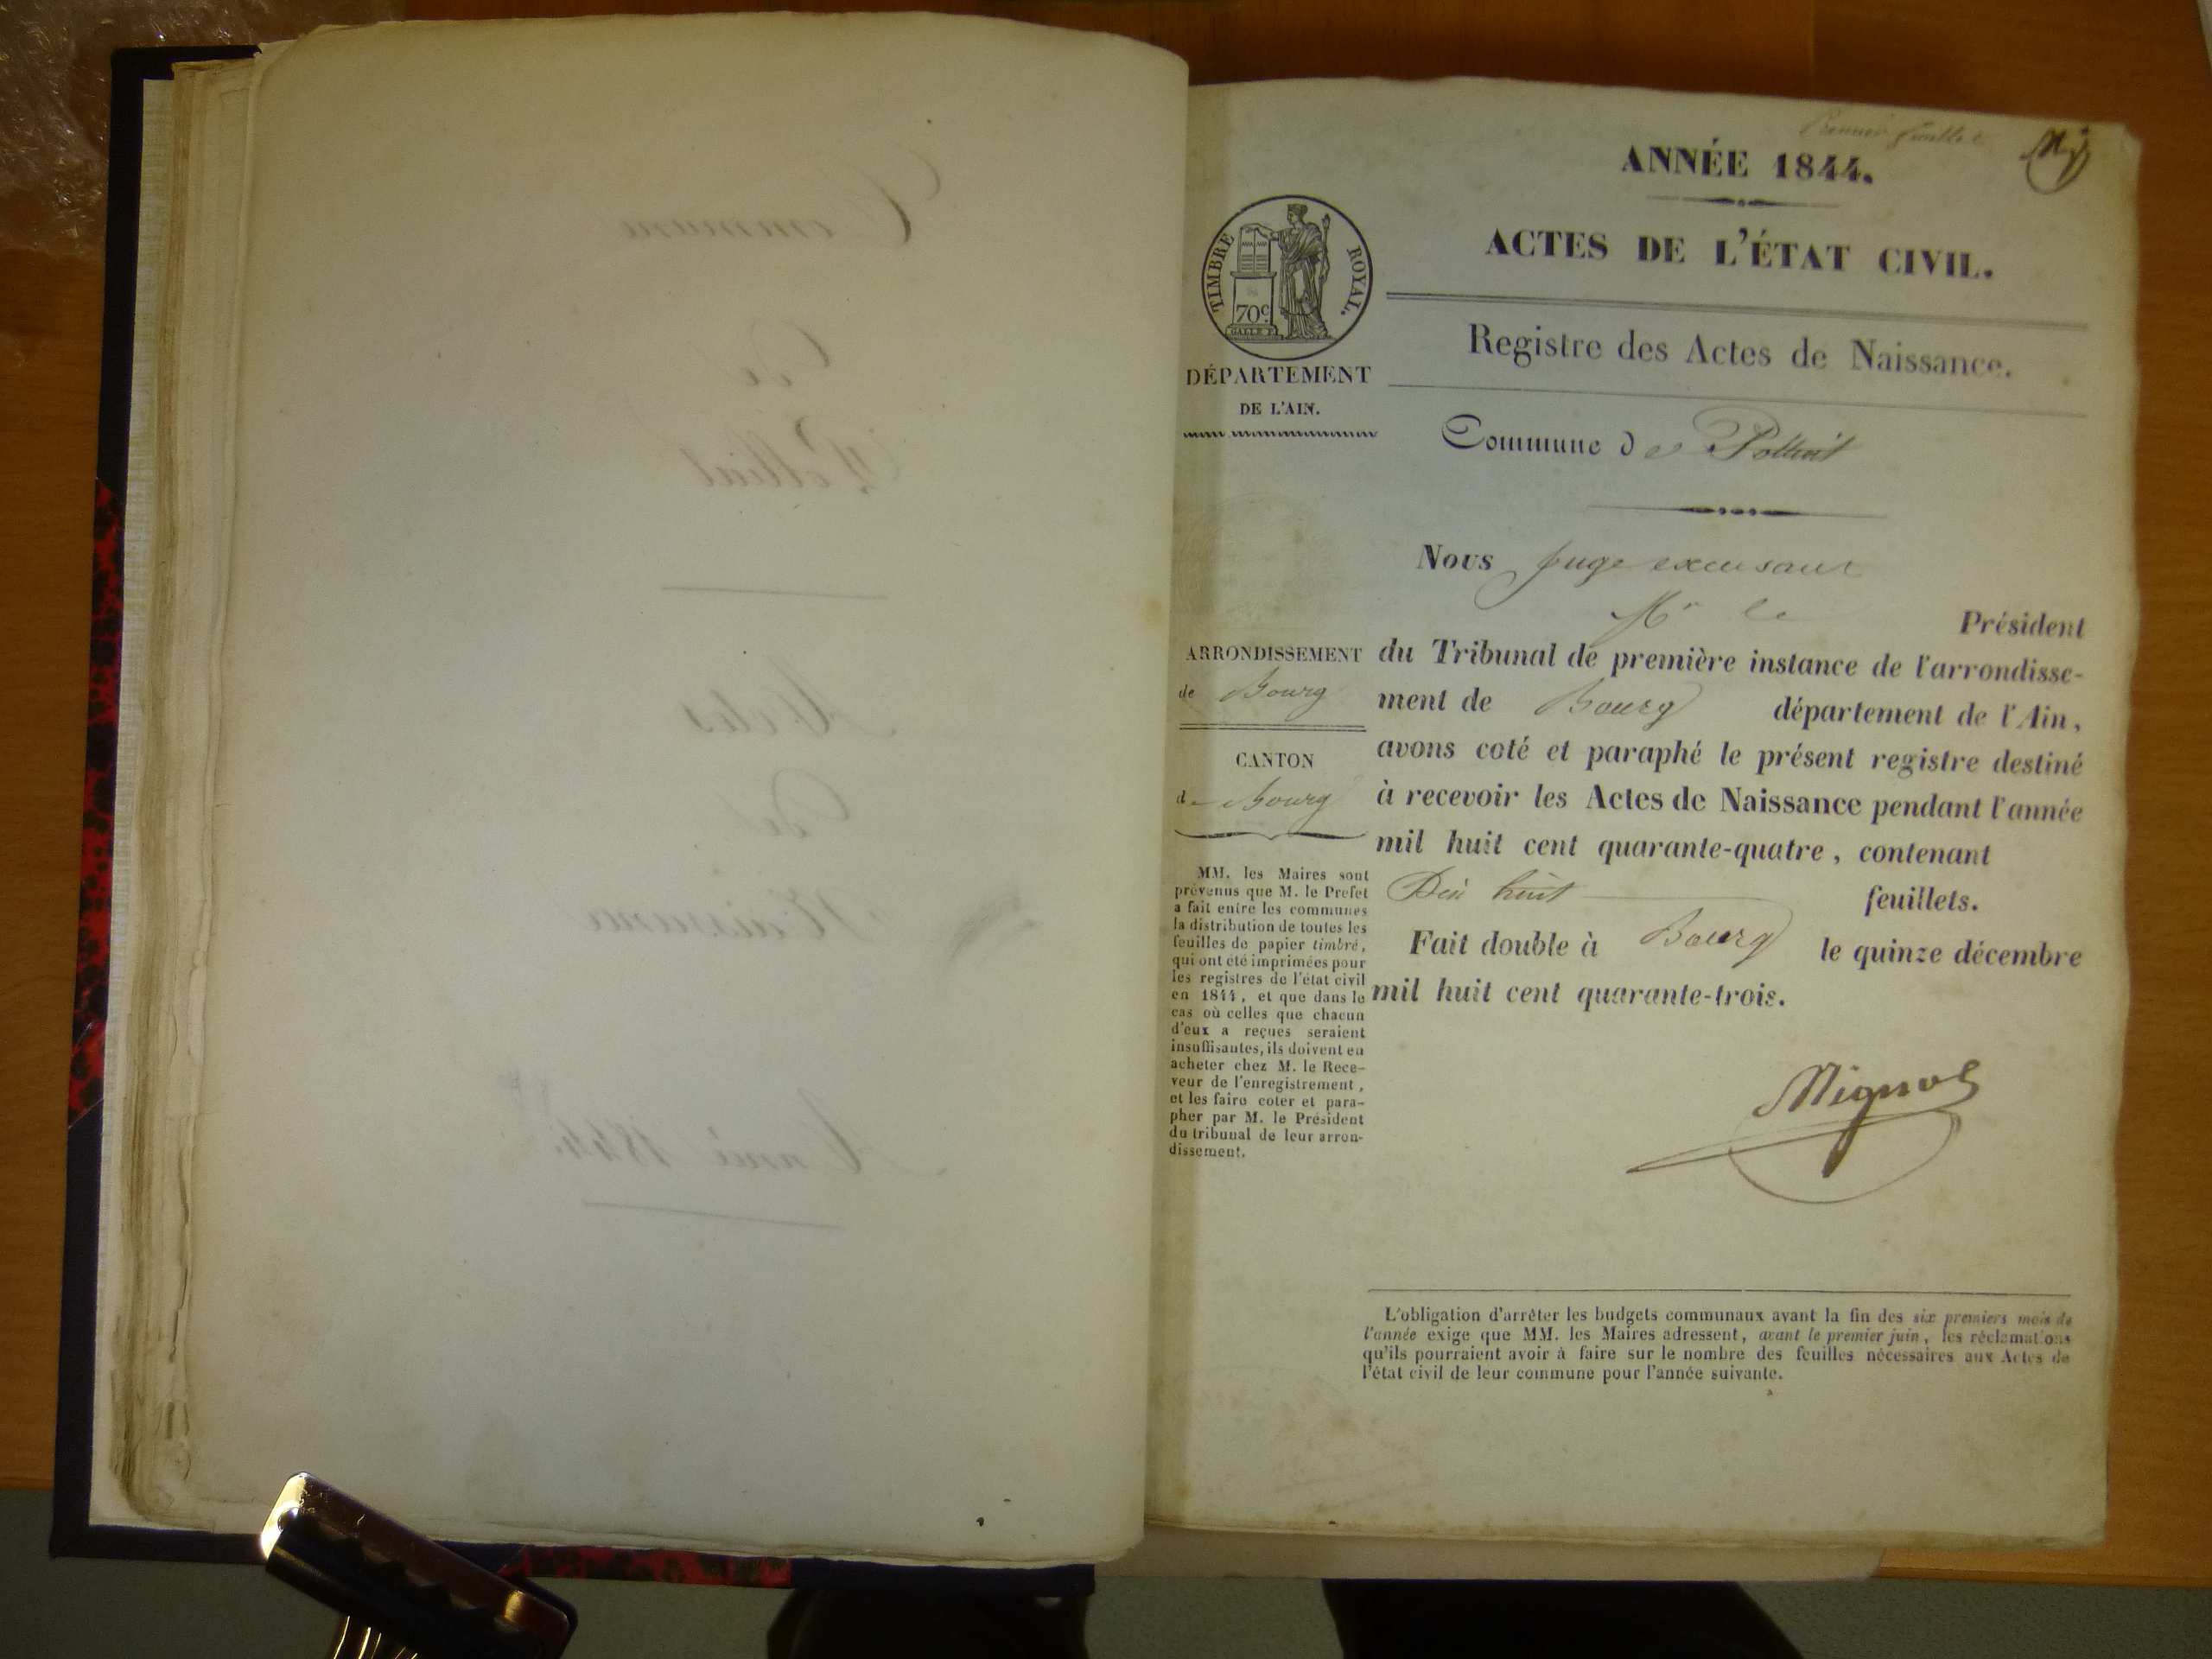 Commune
de
Polliat
Actes
de
Naissance
Année 1844.
Premier feuillet
ANNÉE 1844.
ACTES DE L'ÉTAT CIVIL.
TIMBRE ROYAL.
70c
GALLE F
DÉPARTEMENT
DE L'AIN.
Registre des Actes de Naissance.
Commune de Polliat
Nous Juge excusant
Mr le Président
ARRONDISSEMENT
de Bourg
CANTON
de Bourg
du Tribunal de première instance de l'arrondisse-
ment de Bourg département de l'Ain,
avons coté et paraphé le présent registre destiné
à recevoir les Actes de Naissance pendant l'année
mil huit cent quarante-quatre, contenant
Dix huit feuillets.
Fait double à Bourg le quinze décembre
mil huit cent quarante-trois.
MM. les Maires sont
prévenus que M. le Prefet
a fait entre les communes
la distribution de toutes les
feuilles de papier timbré,
qui ont été imprimées pour
les registres de l'état civil
en 1844, et que dans le
cas où celles que chacun
d'eux a reçues seraient
insuffisantes, ils doivent en
acheter chez M. le Rece-
veur de l'enregistrement,
et les faire coter et para-
pher par M. le Président
du tribunal de leur arron-
dissement.
L'obligation d'arrêter les budgets communaux avant la fin des six premiers mois de
l'année exige que MM. les Maires adressent, avant le premier juin, les réclamations
qu'ils pourraient avoir à faire sur le nombre des feuilles nécessaires aux Actes de
l'état civil de leur commune pour l'année suivante.